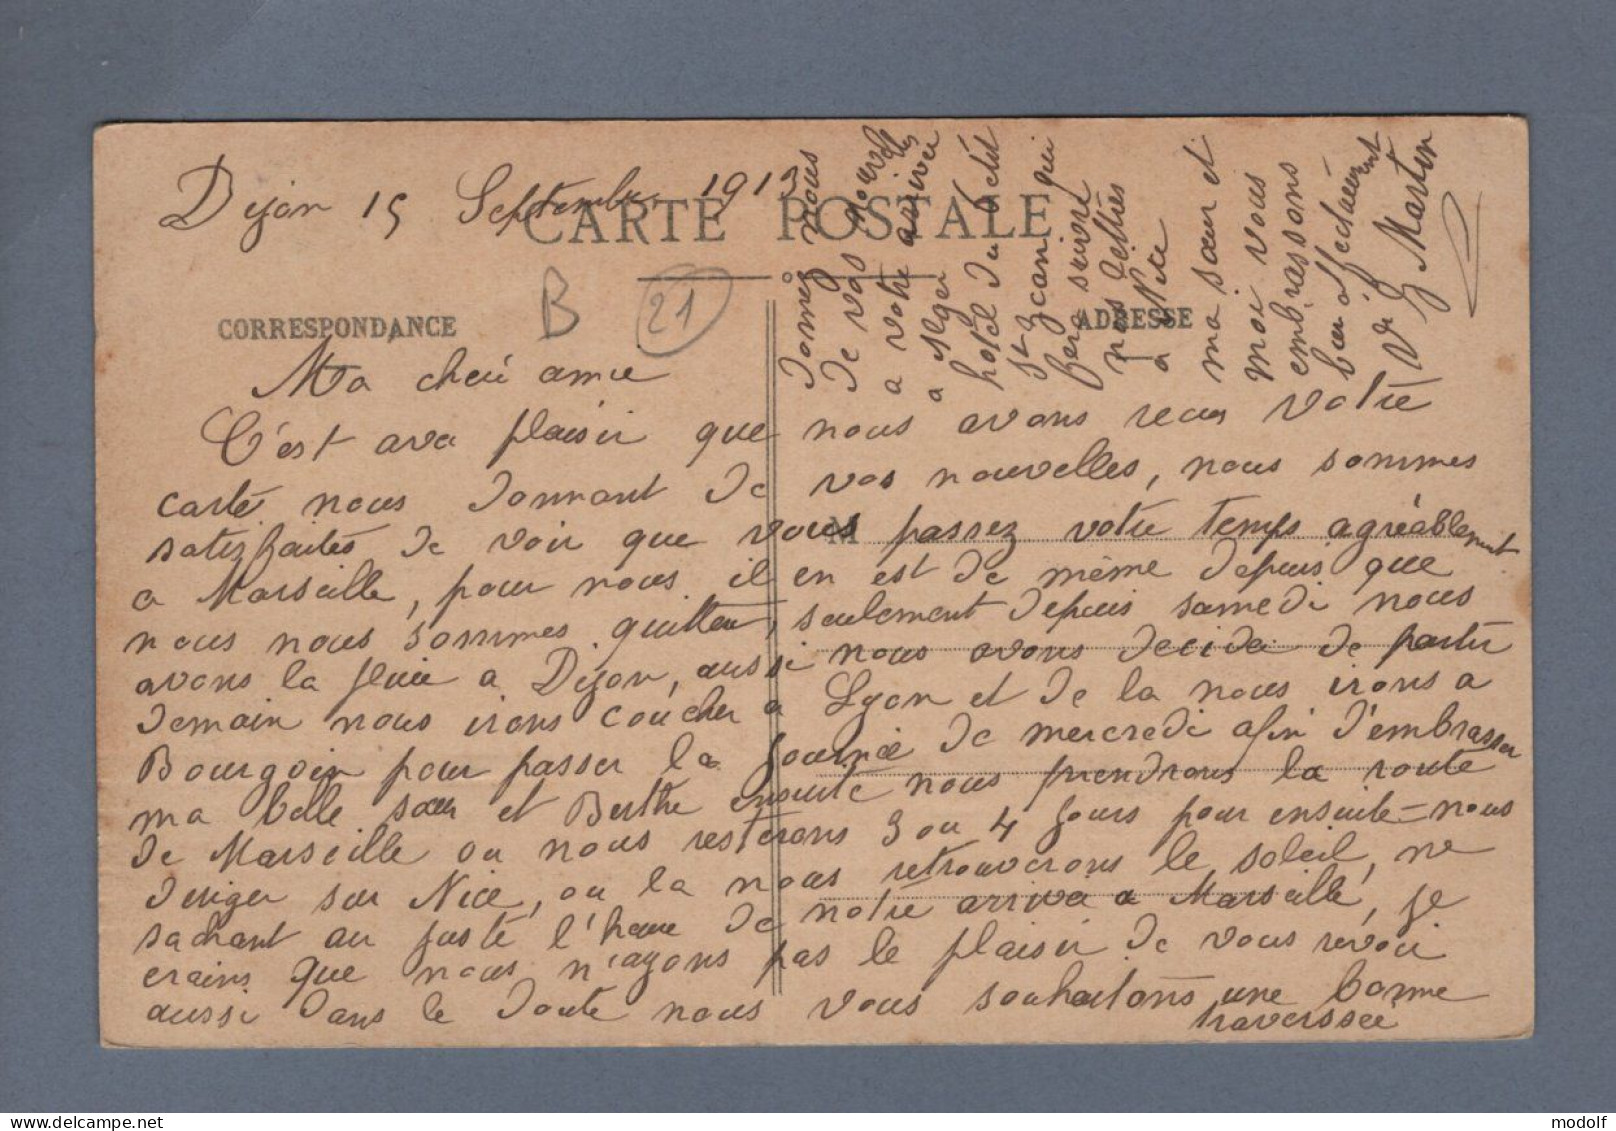 Dijon 15 Septembre 1913
CARTE POSTALE
B
21
CORRESPONDANCE
ADRESSE
M
Ma cheri amie
C'est ava plaisir que nous avons recus votre
carte nous donnant de vos nouvelles, nous sommes
satisfaites de voir que vous passez votre temps agréablement
a Marseille, pour nous il en est de même depuis que
nous nous sommes quitter, seulement depuis samedi nous
avons la pluie a Dijon, aussi nous avons decider de partir
demain nous irons coucher a Lyon et de la nous irons a
Bourgoin pour passer la journée de mercredi afin d'embrasser
ma belle sœur et Berthe ensuite nous prendrons la route
de Marseille ou nous resterons 3 ou 4 jours pour ensuite nous
diriger sur Nice, ou la nous retrouverons le soleil, ne
sachant au juste l'heure de notre arriva a Marseille, je
crains que nous n'ayons pas le plaisir de vous revoir
aussi dans le doute nous vous souhaitons une bonne
traversseé
donnez nous
de vos nouvelles
a votre arrivée
a Alger
hotel du Petit
St Jean qui
fera suivre
nos lettres
a Nice
ma sœur et
moi vous
embrassons
bien affectueusement
Vve J Martin
modolf